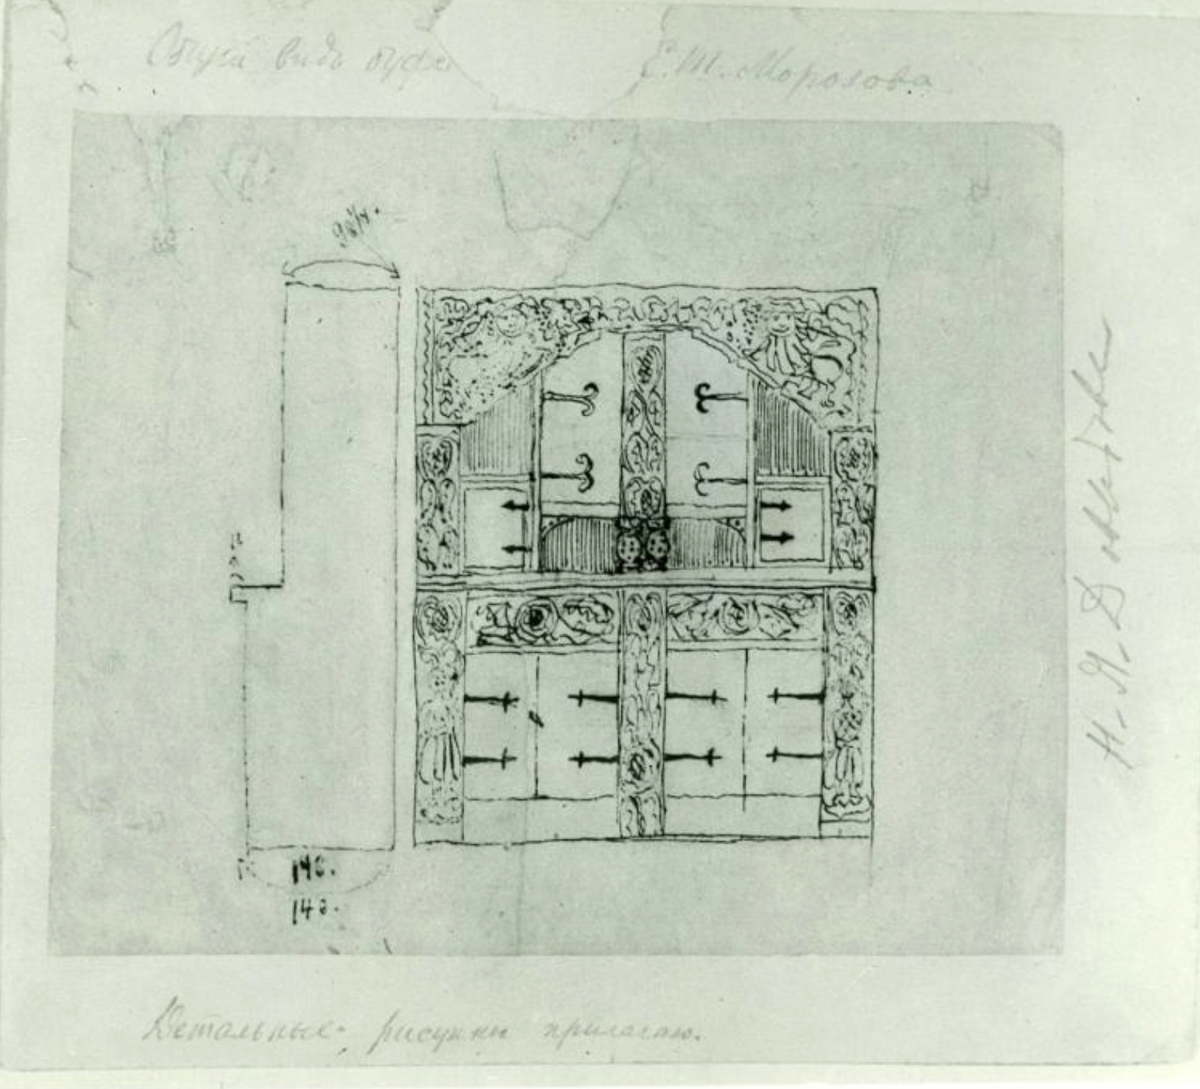 Общий видъ буфе Е. Т. Морозова
98¼.
146.
143.
Детальные рисунки прилагаю.